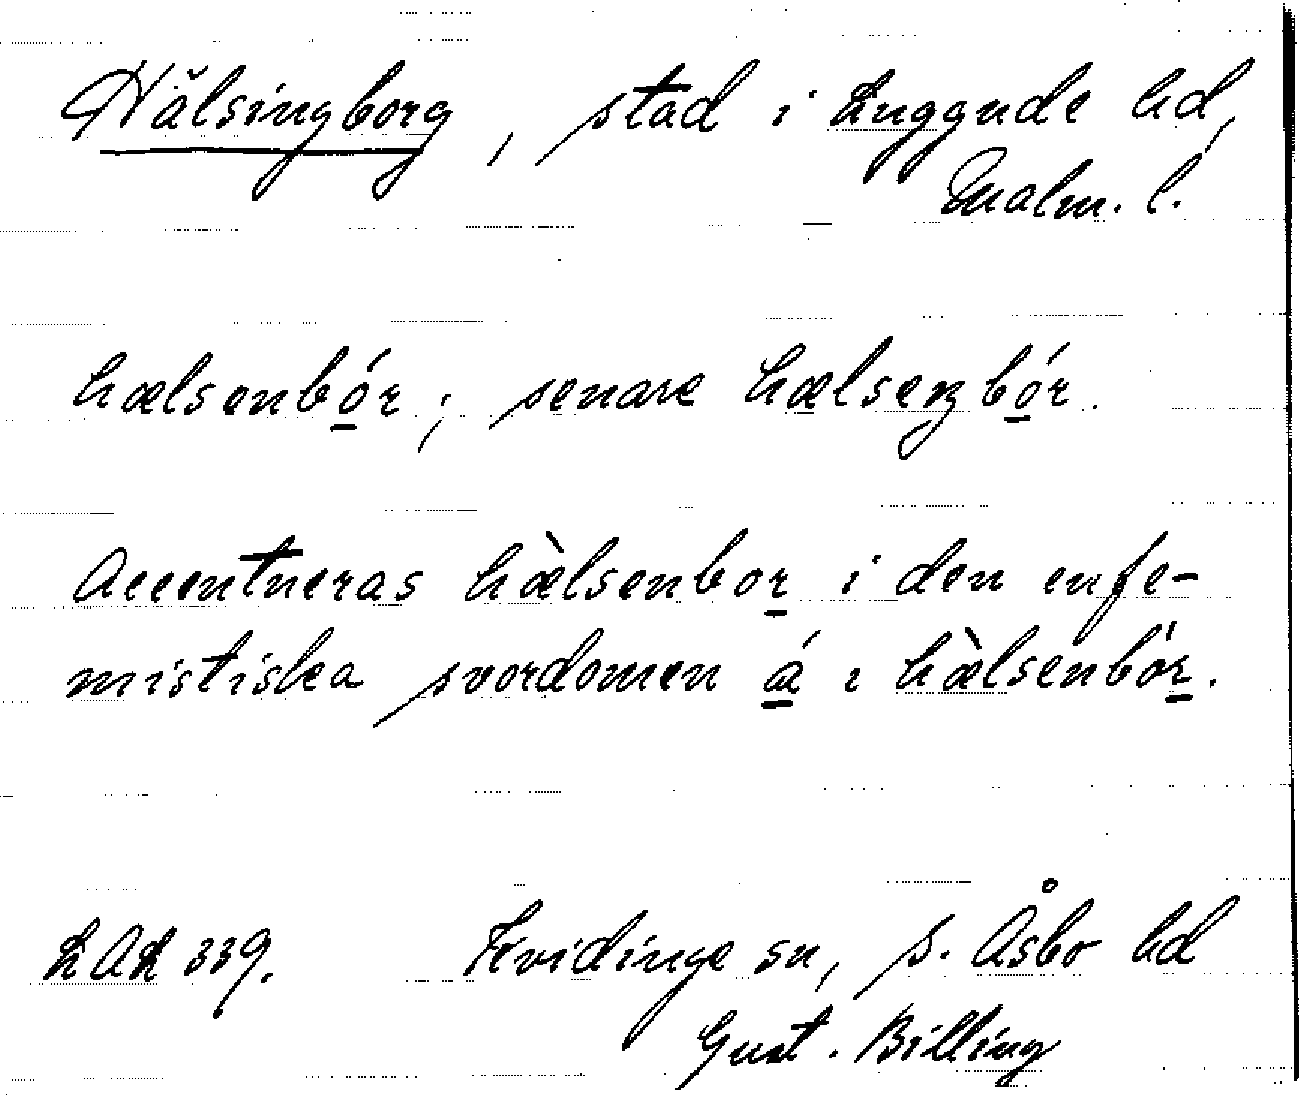 Hälsingborg, stad i Luggude hd,
Malm. l.
hælsenbór; senare hælseŋbór.
Accentueras hæ̀lsenbor i den eufe-
mistiska svordomen á i hæ̀lsenbór.
LAL 339. Kvidinge sn, S. Åsbo hd
Gust. Billing